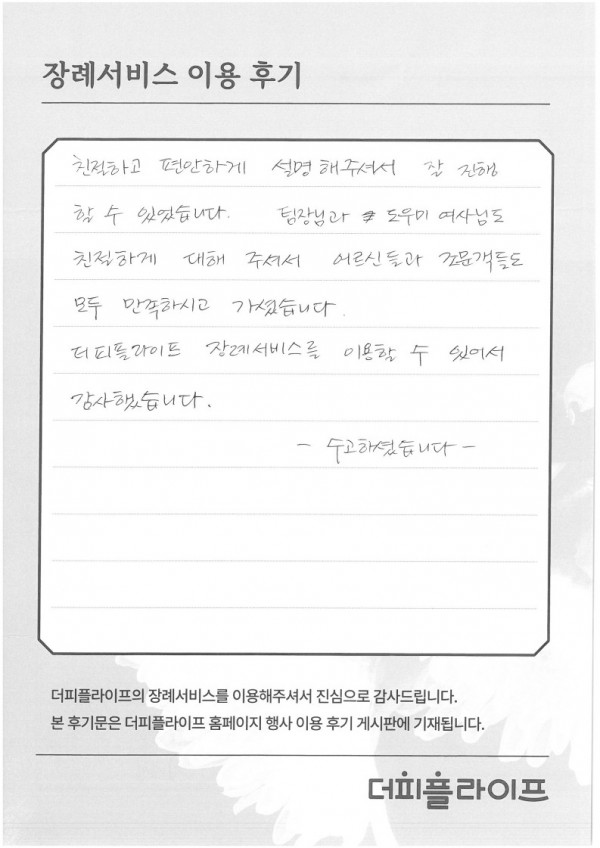 장례서비스 이용 후기
친절하고 편안하게 설명해주셔서 잘 진행
할 수 있었습니다. 팀장님과 도우미 여사님도
친절하게 대해 주셔서 어르신들과 조문객들도
모두 만족하시고 가셨습니다.
더피플라이프 장례서비스를 이용할 수 있어서
감사했습니다.
- 수고하셨습니다 -
더피플라이프의 장례서비스를 이용해주셔서 진심으로 감사드립니다.
본 후기문은 더피플라이프 홈페이지 행사 이용 후기 게시판에 기재됩니다.
더피플라이프